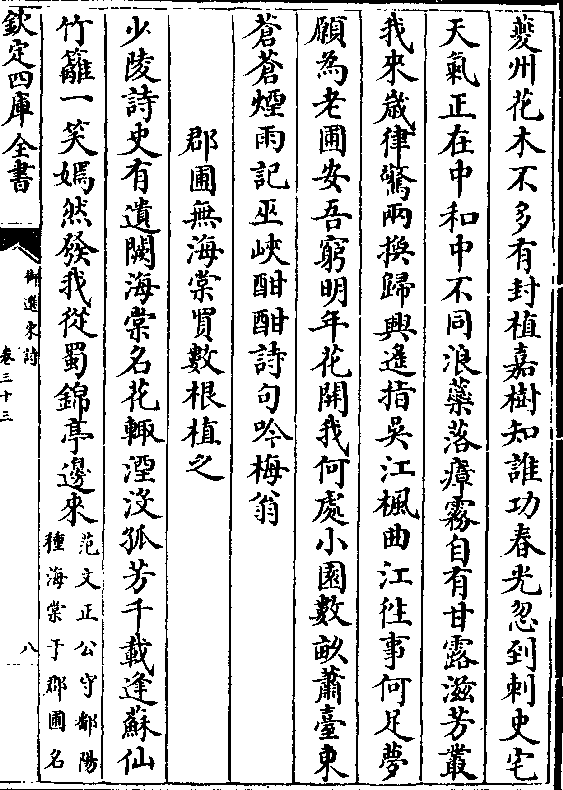 夔州花木不多有封植嘉樹知誰功春光忽到刺史宅
天氣正在中和中不同浪藥落瘴霧自有甘露滋芳叢
我來歲律驚兩換歸興遥指吳江楓曲江徃事何足夢
願為老圃安吾窮明年花開我何處小園數畝蕭臺東
蒼蒼煙雨記巫峽酣酣詩句吟梅翁
郡圃無海棠買數根植之
少陵詩史有遺闕海棠名花輙湮沒孤芳千載逢蘇仙
竹籬一笑嫣然發我從蜀錦亭邊來
范文正公守鄱陽
種海棠于郡圃名
欽定四庫全書
御選宋詩
卷三十三
八